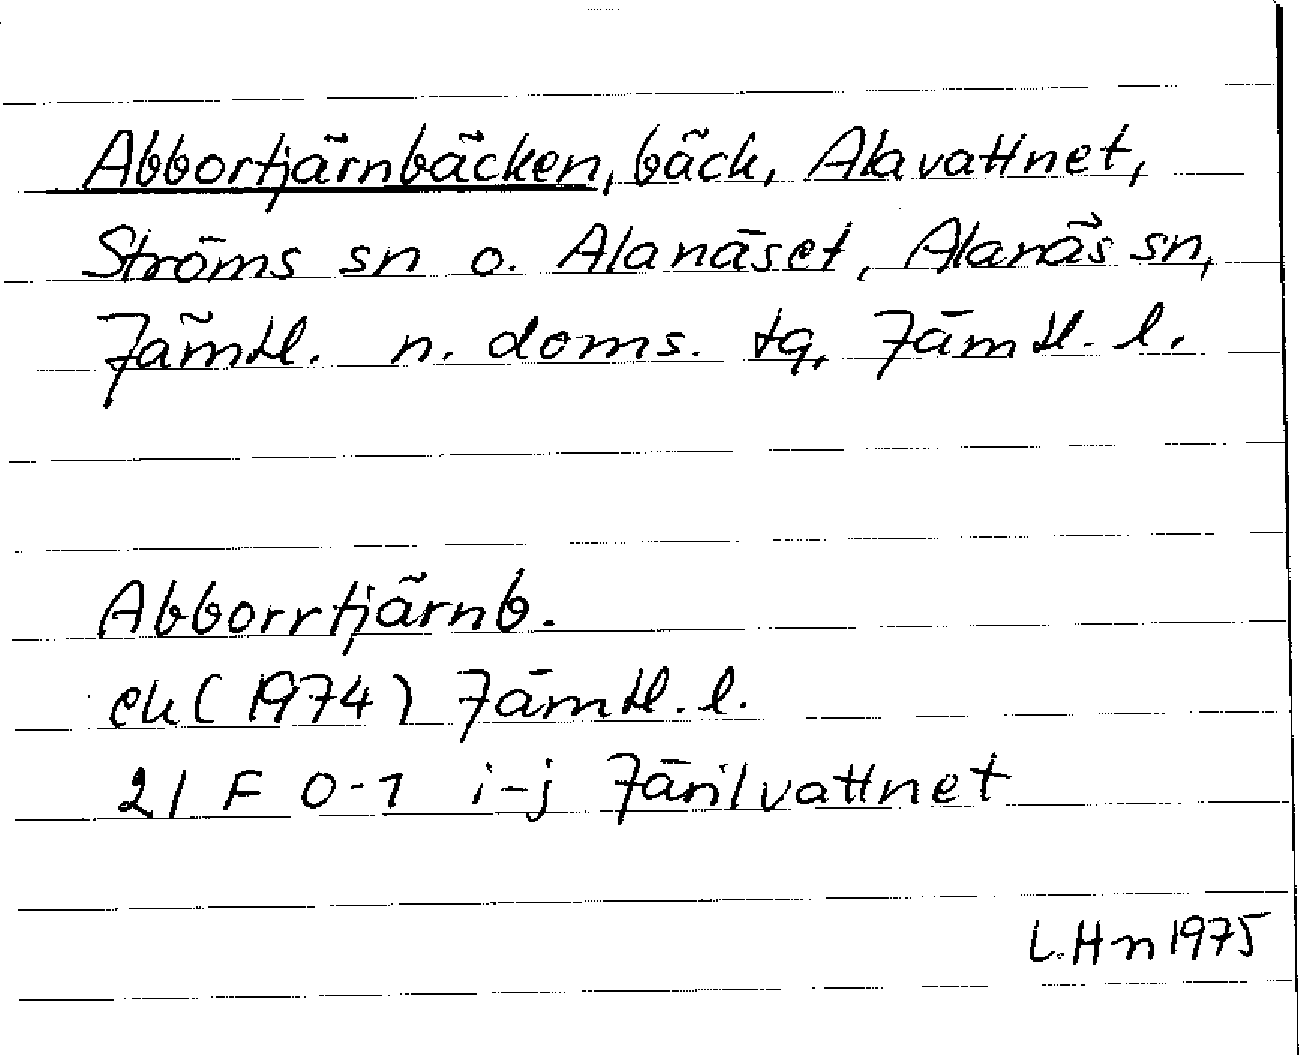 Abbortjärnbäcken, bäck, Alavattnet,
Ströms sn o. Alanäset, Alanäs sn,
Jämtl. n. doms. tg, Jämtl. l.
Abborrtjärnb.
ek (1974) Jämtl. l.
21 F 0-1 i-j Järilvattnet
L.Hn 1975